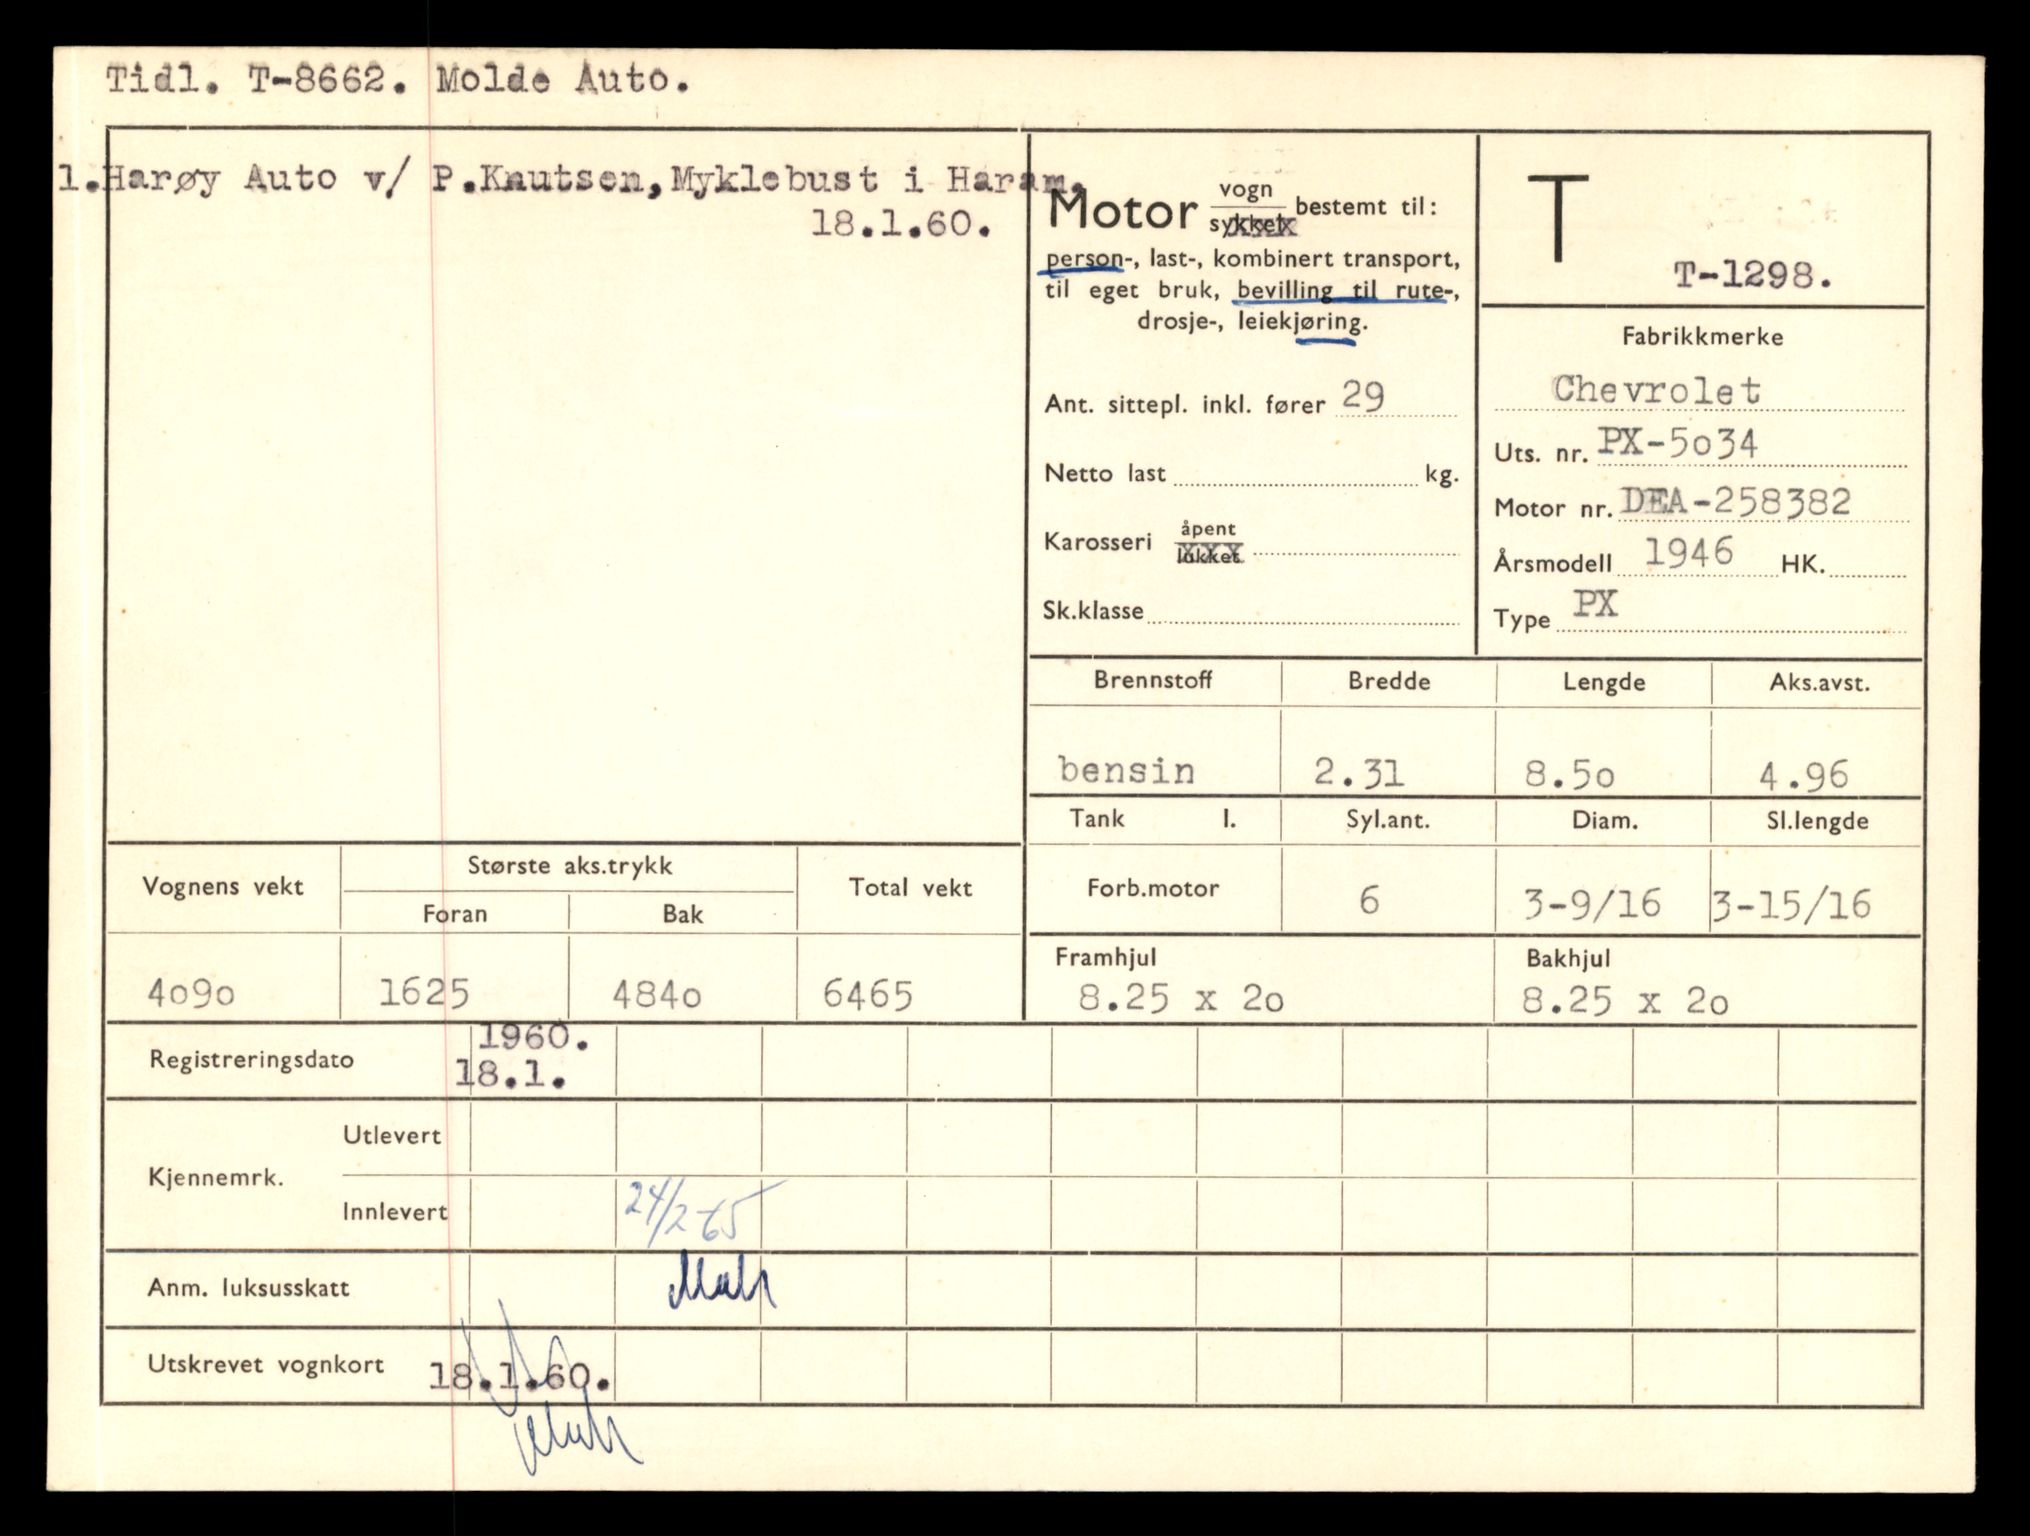 Tidl. T-8662. Molde Auto.
1.Harøy Auto v/ P.Knutsen,Myklebust i Haram.
18.1.60.
Motor vogn
sykkel bestemt til:
person-, last-, kombinert transport,
til eget bruk, bevilling til rute-,
drosje-, leiekjøring.
Ant. sittepl. inkl. fører 29
Netto last kg.
Karosseri åpent
lukket
Sk.klasse
T
T-1298.
Fabrikkmerke
Chevrolet
Uts. nr. PX-5o34
Motor nr. DEA-258382
Årsmodell 1946 HK.
Type PX
Brennstoff Bredde Lengde Aks.avst.
bensin 2.31 8.5o 4.96
Tank l. Syl.ant. Diam. Sl.lengde
Forb.motor 6 3-9/16 3-15/16
Framhjul Bakhjul
8.25 x 2o 8.25 x 2o
Vognens vekt Største aks.trykk Total vekt
Foran Bak
4o9o 1625 484o 6465
Registreringsdato 1960.
18.1.
Kjennemrk. Utlevert
Innlevert 24/2-65
Anm. luksusskatt
Utskrevet vognkort 18.1.60.